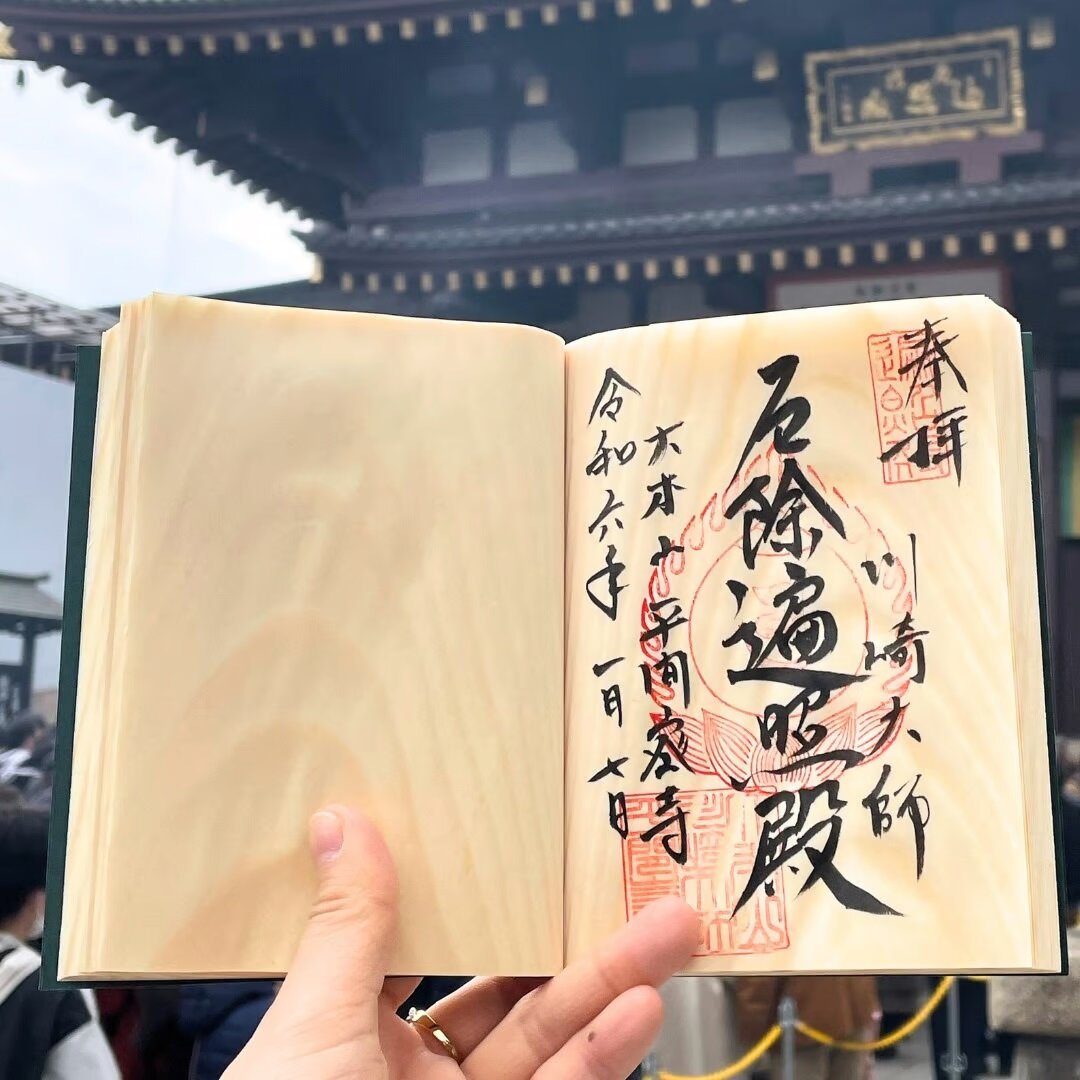 奉拝
川崎大師
厄除遍照殿
大本山 平間寺
令和六年 一月 七日